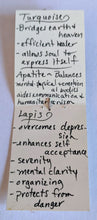 Turquoise
- Bridges earth &
heaven
- efficient healer
- allows soul to
express itself
Apatite - Balances
mental, physical, &
aids communication &
humanitarianism
Lapis
- overcomes depres-
sion
- enhances self
acceptance
- serenity
- mental clarity
- organizing
- protects from
danger